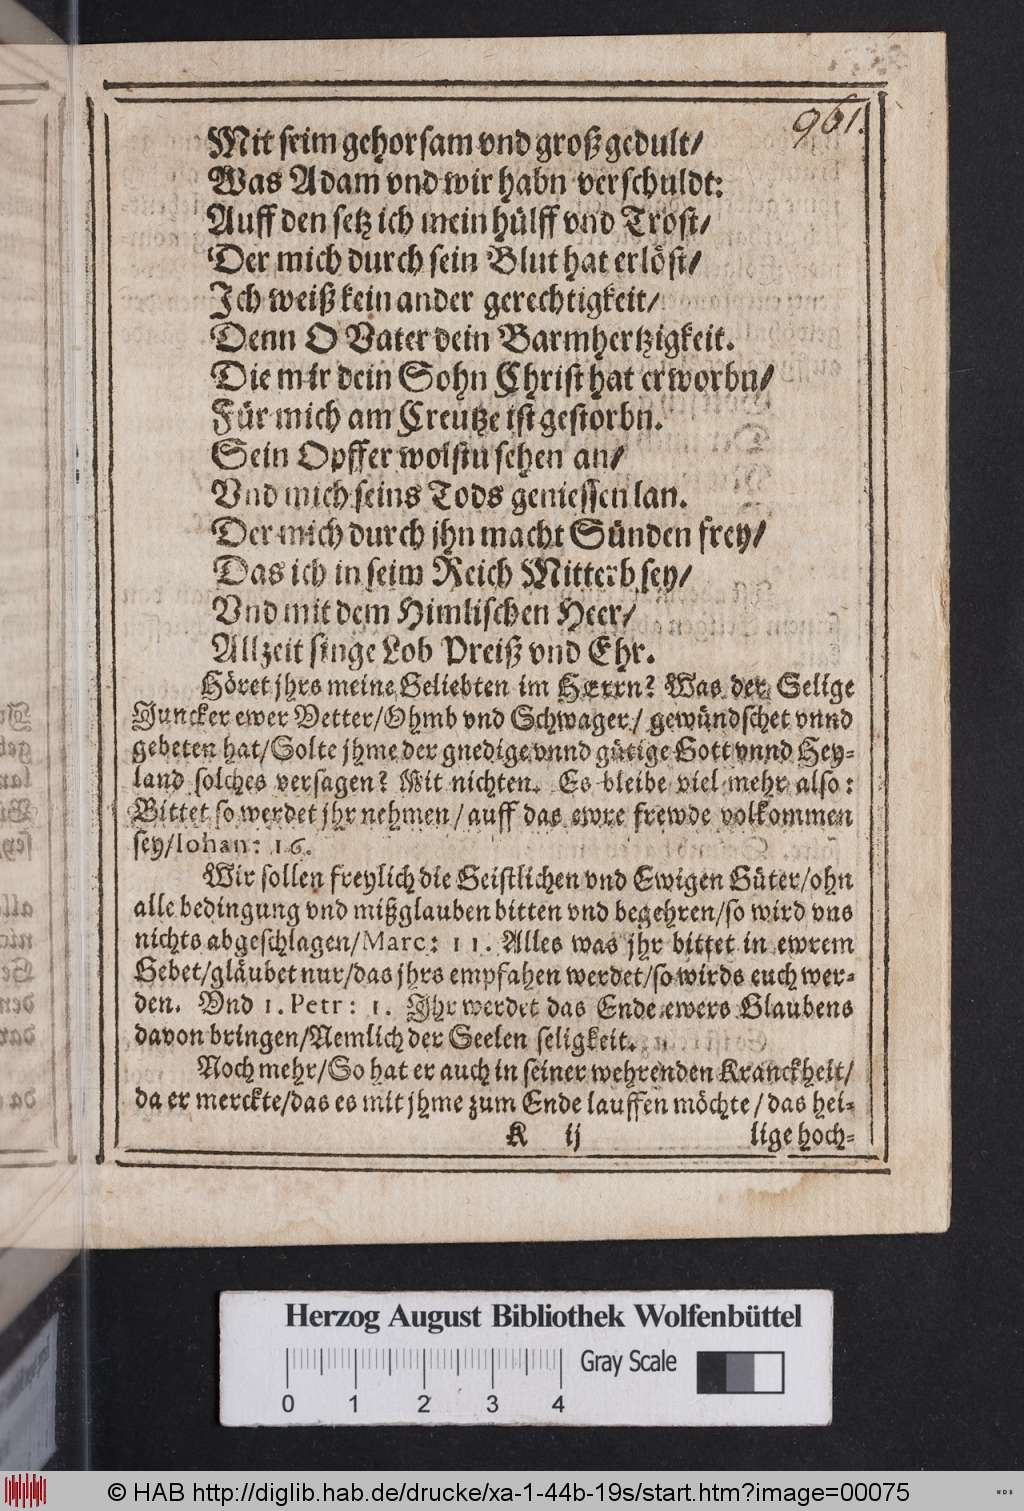 961.
Mit seim gehorsam vnd groß gedult/
Was Adam vnd wir habn verschuldt:
Auff den setz ich mein hülff vnd Trost/
Der mich durch sein Blut hat erlöst/
Ich weiß kein ander gerechtigkeit/
Denn O Vater dein Barmhertzigkeit.
Die mir dein Sohn Christ hat erworbn/
Für mich am Creutze ist gestorbn.
Sein Opffer wolstu sehen an/
Vnd mich seins Tods geniessen lan.
Der mich durch jhn macht Sünden frey/
Das ich in seim Reich Mitterb sey/
Vnd mit dem Himlischen Heer/
Allzeit singe Lob Preiß vnd Ehr.
Höret jhrs meine Geliebten im HErrn? Was der Selige
Juncker ewer Vetter/Ohmb vnd Schwager/ gewündschet vnnd
gebeten hat/Solte jhme der gnedige vnnd gütige Gott vnnd Hey-
land solches versagen? Mit nichten. Es bleibe viel mehr also:
Bittet so werdet jhr nehmen/auff das ewre frewde volkommen
sey/Iohan: 16.
Wir sollen freylich die Geistlichen vnd Ewigen Güter/ohn
alle bedingung vnd mißglauben bitten vnd begehren/so wird vns
nichts abgeschlagen/Marc: 11. Alles was jhr bittet in ewrem
Gebet/gläubet nur/das jhrs empfahen werdet/so wirds euch wer-
den. Vnd 1. Petr: 1. Ihr werdet das Ende ewers Glaubens
davon bringen/Nemlich der Seelen seligkeit.
Noch mehr/So hat er auch in seiner wehrenden Kranckheit/
da er merckte/das es mit jhme zum Ende lauffen möchte/das hei-
K ij lige hoch-
Herzog August Bibliothek Wolfenbüttel
Gray Scale
0 1 2 3 4
© HAB http://diglib.hab.de/drucke/xa-1-44b-19s/start.htm?image=00075